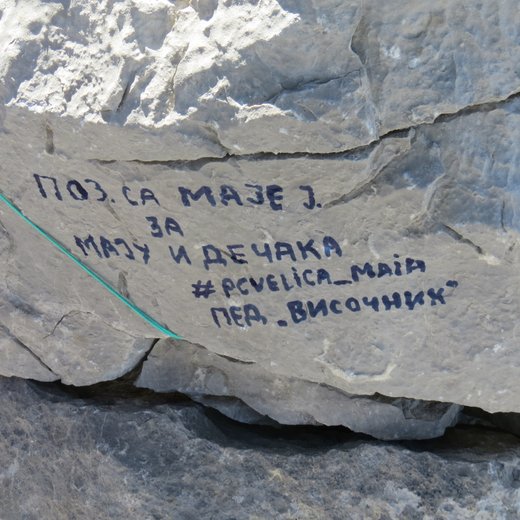 ПОЗ. СА МАЈЕ Ј.
ЗА
МАЈУ И ДЕЧАКА
#PCVELICA_MAIA
ПЕД „ВИСОЧНИК"